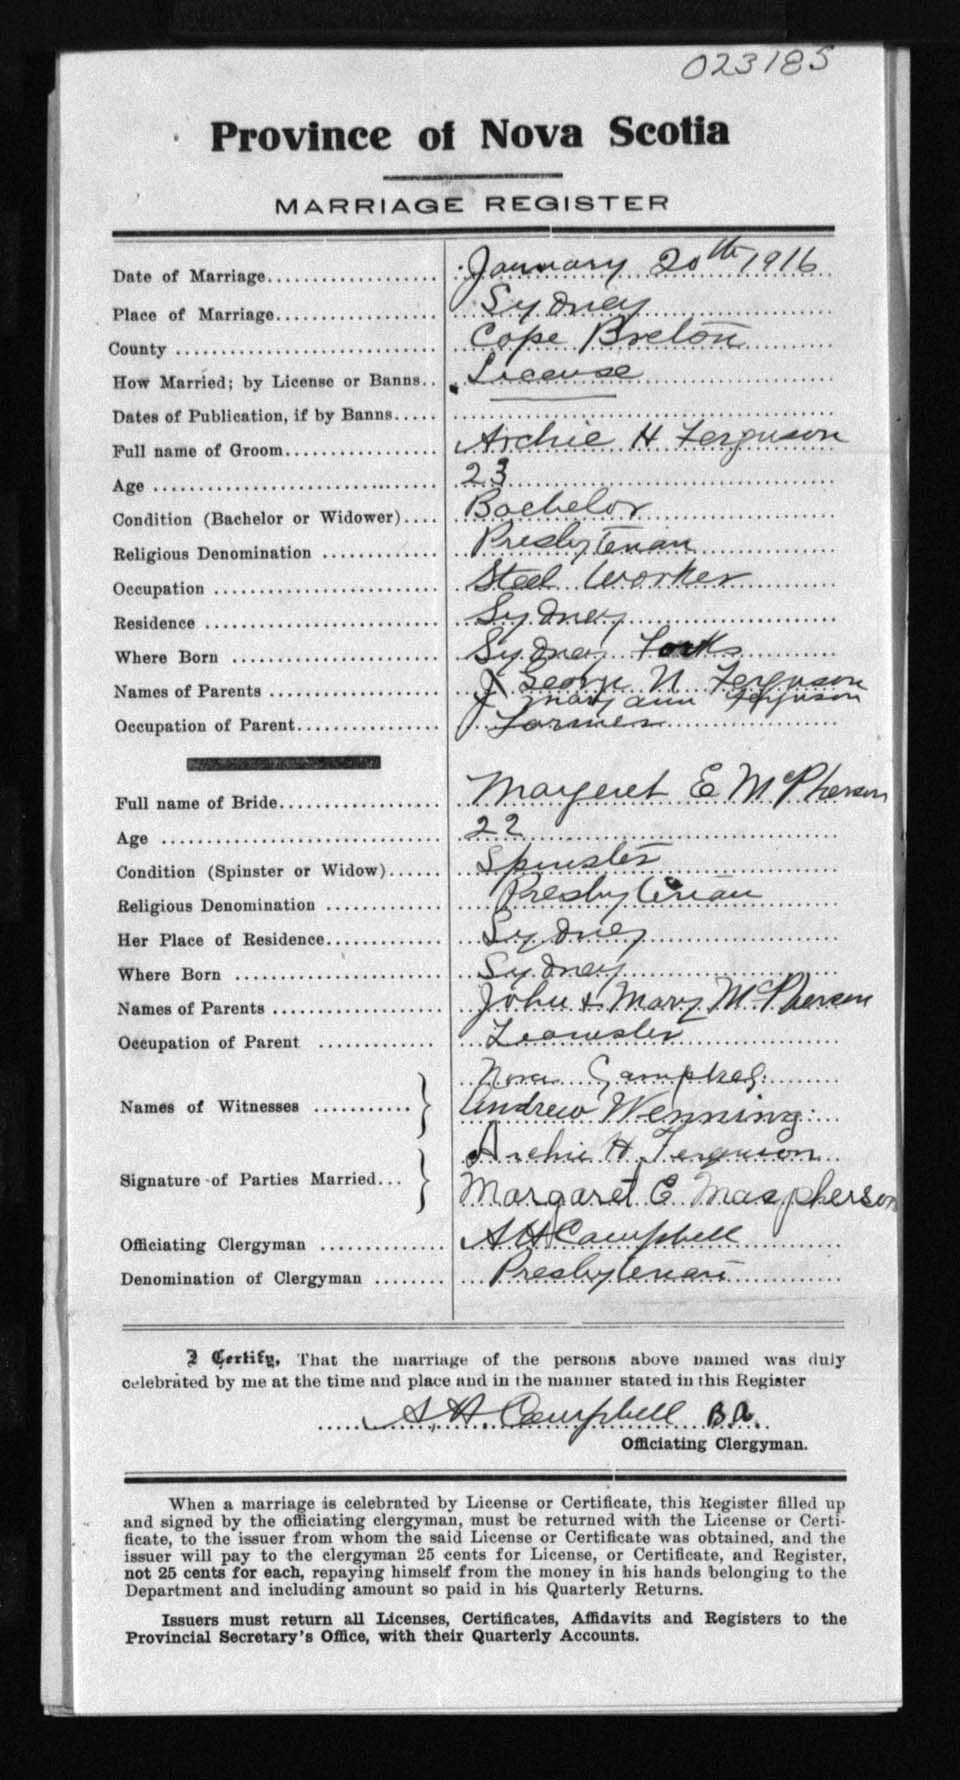 023185
Province of Nova Scotia
MARRIAGE REGISTER
Date of Marriage................... January 20th 1916
Place of Marriage.................. Sydney
County ............................ Cape Breton
How Married; by License or Banns.. License
Dates of Publication, if by Banns.....
Full name of Groom................. Archie H Ferguson
Age ............................... 23
Condition (Bachelor or Widower).... Bachelor
Religious Denomination ............ Presbyterian
Occupation ........................ Steel Worker
Residence ......................... Sydney
Where Born ........................ Sydney Forks
Names of Parents .................. George N Ferguson
Mary ann Ferguson
Occupation of Parent............... Farmer
Full name of Bride................. Margeret E McPherson
Age ............................... 22
Condition (Spinster or Widow)...... Spinster
Religious Denomination ............ Presbyterian
Her Place of Residence............. Sydney
Where Born ........................ Sydney
Names of Parents .................. John & Mary McPherson
Occupation of Parent ............. Teamster
Names of Witnesses ........... Campbell
Andrew Wenning
Signature of Parties Married... Archie H. Ferguson
Margaret E Macpherson
Officiating Clergyman .............. A H Campbell
Denomination of Clergyman ........ Presbyterian
I Certify, That the marriage of the persons above named was duly
celebrated by me at the time and place and in the manner stated in this Register
A. H. Campbell B.A.
Officiating Clergyman.
When a marriage is celebrated by License or Certificate, this Register filled up
and signed by the officiating clergyman, must be returned with the License or Certi-
ficate, to the issuer from whom the said License or Certificate was obtained, and the
issuer will pay to the clergyman 25 cents for License, or Certificate, and Register,
not 25 cents for each, repaying himself from the money in his hands belonging to the
Department and including amount so paid in his Quarterly Returns.
Issuers must return all Licenses, Certificates, Affidavits and Registers to the
Provincial Secretary's Office, with their Quarterly Accounts.